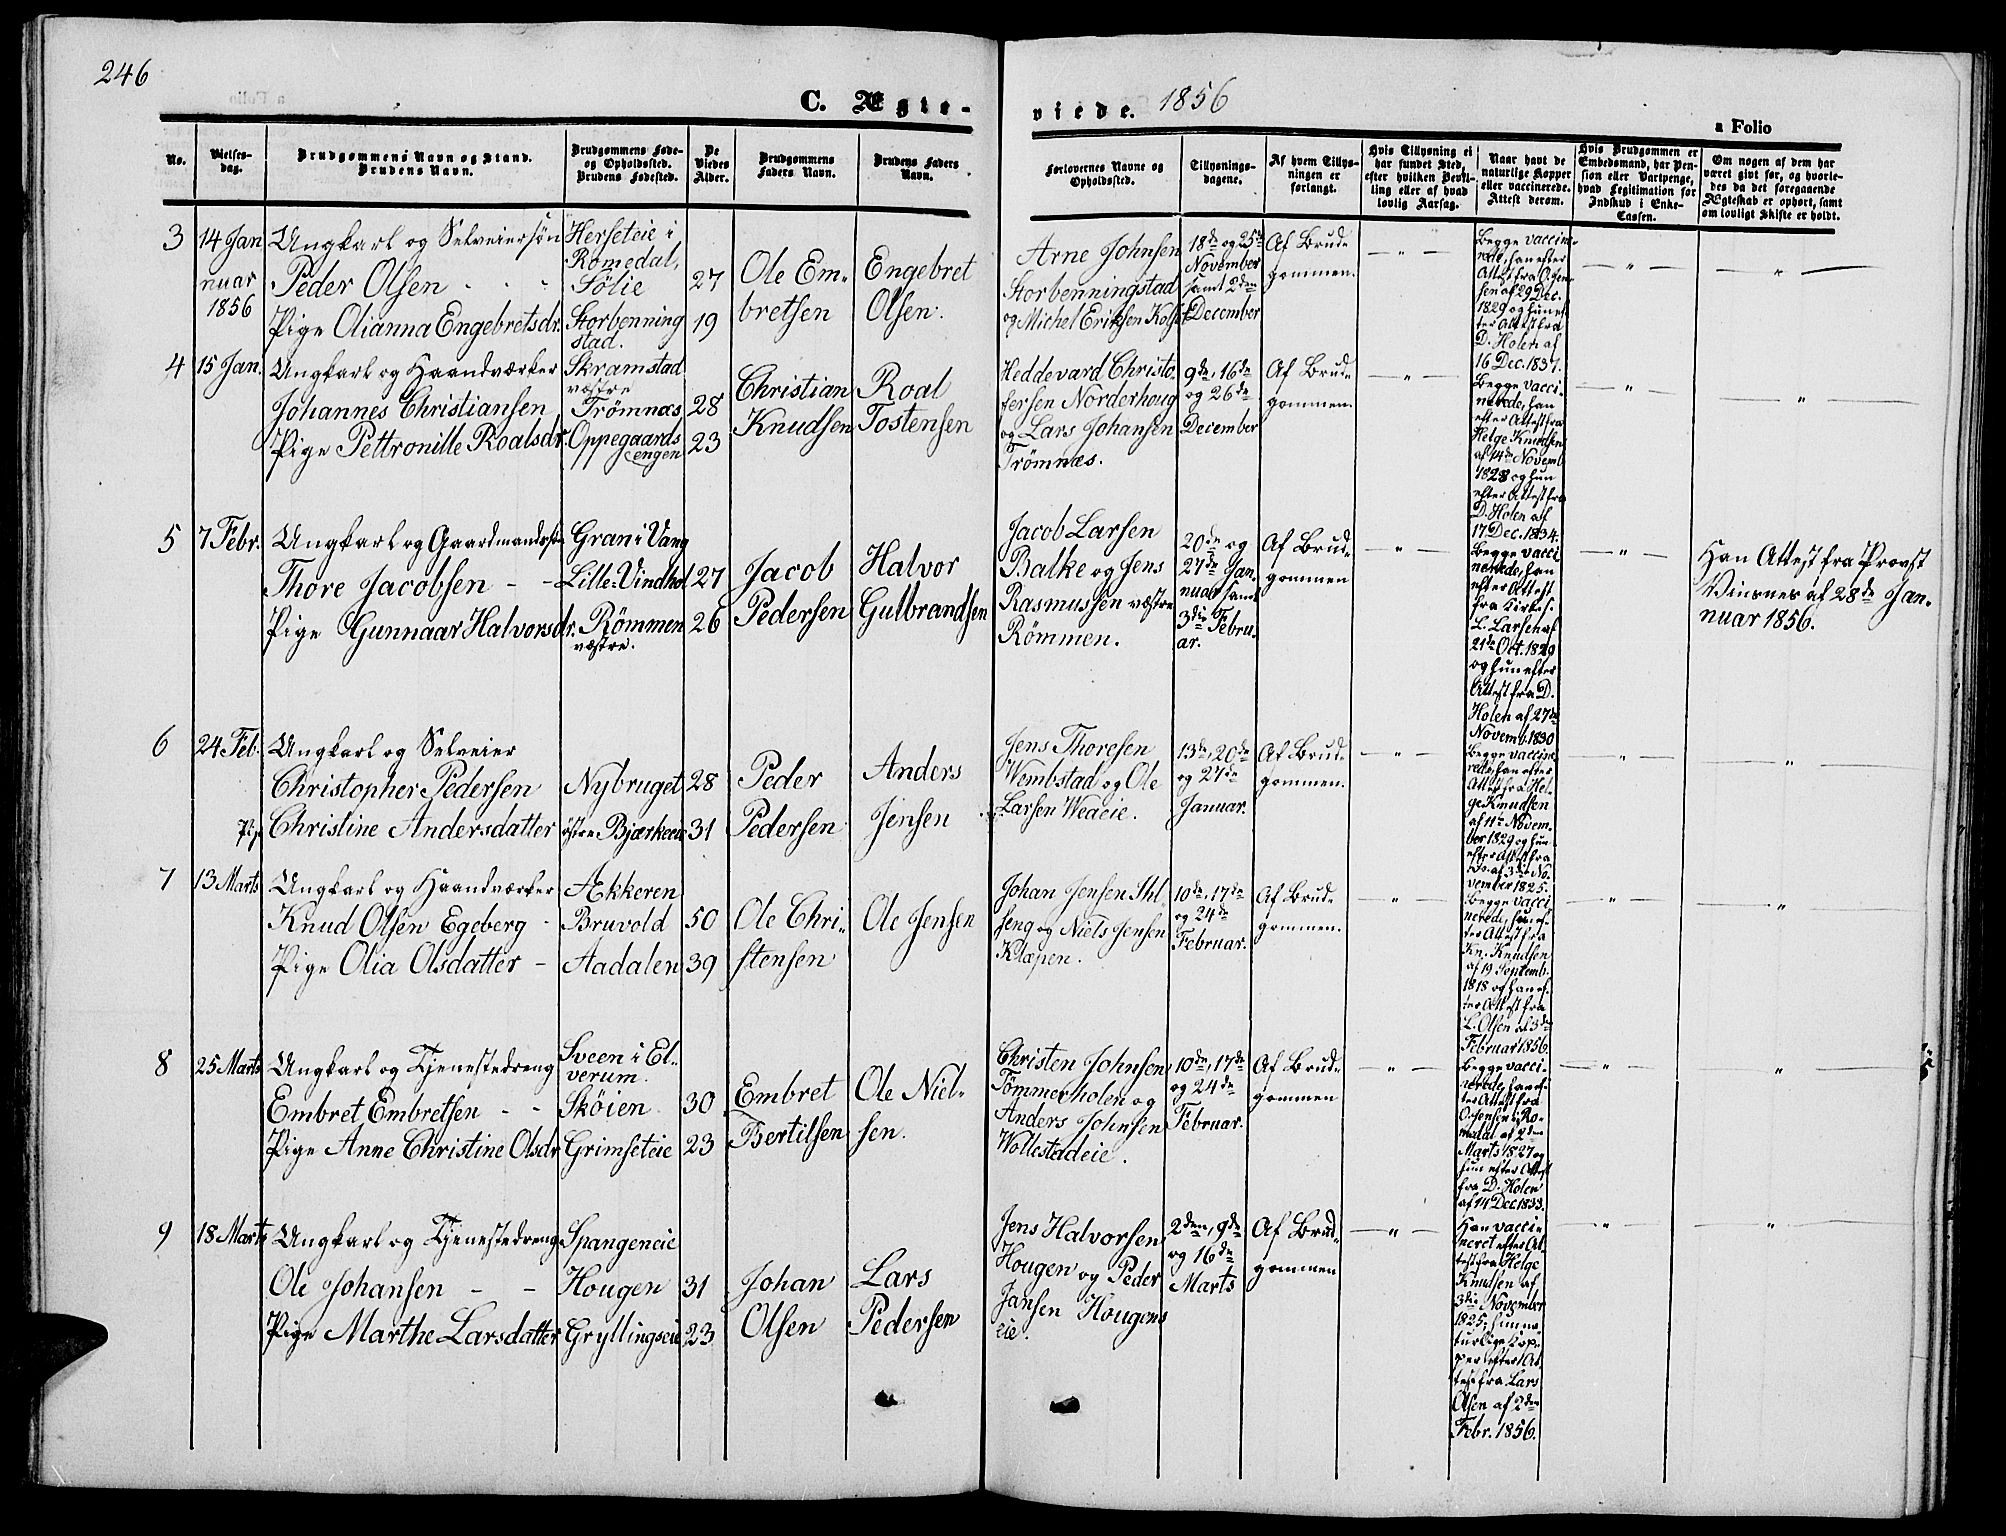 246
C. Ægte-
viede. 1856
a Folio
No.
Vielses-
dag.
Brudgommens Navn og Stand.
Brudens Navn.
Brudgommens Føde-
og Opholdssted.
Brudens Fødested.
De
Viedes
Alder.
Brudgommens
Faders Navn.
Brudens Faders
Navn.
Forlovernes Navne og
Opholdssted.
Tillysnings-
dagene.
Af hvem Tillys-
ningen er
forlangt.
Hvis Tillysning ei
har fundet Sted,
efter hvilken Bevil-
ling eller af hvad
lovlig Aarsag.
Naar havt de
naturlige Kopper
eller vaccinerede.
Attest derom.
Hvis Brudgommen er
Embedsmand, har Pen-
sion eller Vartpenge,
hvad Legitimation for
Indskud i Enke-
Cassen.
Om nogen af dem har
været givt før, og hvorle-
des da det foregaaende
Ægteskab er ophørt, samt
om lovligt Skifte er holdt.
3
14 Jan
nuar
1856
Ungkarl og Selveiersøn
Peder Olsen
Pige Olianna Engebretsdr.
Herseteie i
Romedal,
Sølie
Storbenning
stad.
27
19
Ole Em-
bretsen
Engebret
Olsen.
Arne Johnsen
Storbenningstad
og Michel Eriksen Kolset
18de og 25de
November
samt 2den
December
Af Brud-
gommen.
Begge vaccine-
rede, han efter
Attest fra O. Jen-
sen af 29 Dec.
1829 og hun ef-
ter Attest fra
D. Holen af
16 Dec. 1837.
4
15 Jan.
Ungkarl og Haandværker
Johannes Christiansen
Pige Pettronille Roalsdr.
Skramstad
væstre
Trömnæs
Oppegaards
engen
28
23
Christian
Knudsen
Roal
Tostensen
Heddevard Christo-
fersen Norderhoug
og Lars Johansen
Trömnæs.
9de, 16de
og 26de
December
Af Brud-
gommen.
Begge vacci-
nerede, han
efter Attest fra
Helge Knudsen
af 14de Novemb.
1828 og hun
efter Attest fra
D. Holen af
17 Dec. 1834.
5
7 Febr.
Ungkarl og Gaardmandssøn
Thore Jacobsen
Pige Gunnaar Halvorsdr.
Gran i Vang
Lille-Vindhol
Römmen
væstre.
27
26
Jacob
Pedersen
Halvor
Gulbrandsen
Jacob Larsen
Balke og Jens
Rasmussen væstre
Römmen.
20de og
27de Jan-
nuar samt
3die Febru-
ar.
Af Brud-
gommen
Begge vacci
nerede, han
efter Attest
fra Kirkes.
L. Larsen af
21de Oct. 1829
og hun efter
Attest fra D.
Holen af 27de
Novemb. 1830
Han Attest fra Provst
Winsnes af 28de Jan-
nuar 1856.
6
24 Feb.
Ungkarl og Selveier
Christopher Pedersen
Pige Christine Andersdatter
Nybruget
östre Bjærkeen
28
31
Peder
Pedersen
Anders
Jensen
Jens Thoresen
Wembstad og Ole
Larsen Weaeie.
13de, 20de
og 27de
Januar.
Af Brud-
gommen.
Begge vaccine-
rede, han efter
Attest fra Hel-
ge Knudsen
af 11te Novem-
ber 1829 og hun
efter Attest fra
af 3die No-
vember 1825.
7
13 Marts
Ungkarl og Haandværker
Knud Olsen Egeberg
Pige Olia Olsdatter
Akkeren
Bruvold
Aadalen
50
39
Ole Chri-
stensen
Ole Jensen
Johan Jensen
seng og Niels Jensen
Klæpen.
10de, 17de
og 24de
Februar.
Af Brud-
gommen.
Begge vacci
nerede, hun ef-
ter Attest fra
Kn. Knudsen
af 19 Septemb.
1818 og han ef-
ter Attest fra
L. Olsen af 3die
Februar 1856.
8
25 Marts
Ungkarl og Tjenestedreng
Embret Embretsen
Pige Anne Christine Olsdr
Sveen i El-
verum.
Sköien
Grimseteie
30
23
Embret
Bertilsen
Ole Niel-
sen.
Christen Johnsen
Tömmerholen og
Anders Johnsen
Wollestadeie.
10de, 17de
og 24de
Februar.
Af Brud-
gommen
Begge vacci-
nerede, han ef-
ter Attest fra
O. Jensen i Ro-
medal af 2den
Marts 1827 og
hun efter Attest
fra D. Holen
af 14 Dec. 1833.
9
18 Marts
Ungkarl og Tjenestedreng
Ole Johansen
Pige Marthe Larsdatter
Spangeneie
Hougen
Gryllingseie
31
23
Johan
Olsen
Lars
Pedersen
Jens Halvorsen
Hougen og Peder
Jansen Hougens
eie.
2den, 9de
og 16de
Marts
Af Brud-
gommen
Han vacci-
neret efter At-
test fra Helge
Knudsen af
3die November
1825, hun na-
turlige Kop-
per efter At-
test fra Lars
Olsen af 2den
Febr. 1856.